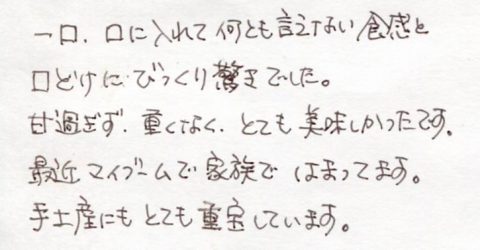 一口、口に入れて何とも言えない食感と
口どけにびっくり驚きでした。
甘過ぎず、重くなく、とても美味しかったです。
最近マイブームで家族ではまってます。
手土産にもとても重宝しています。